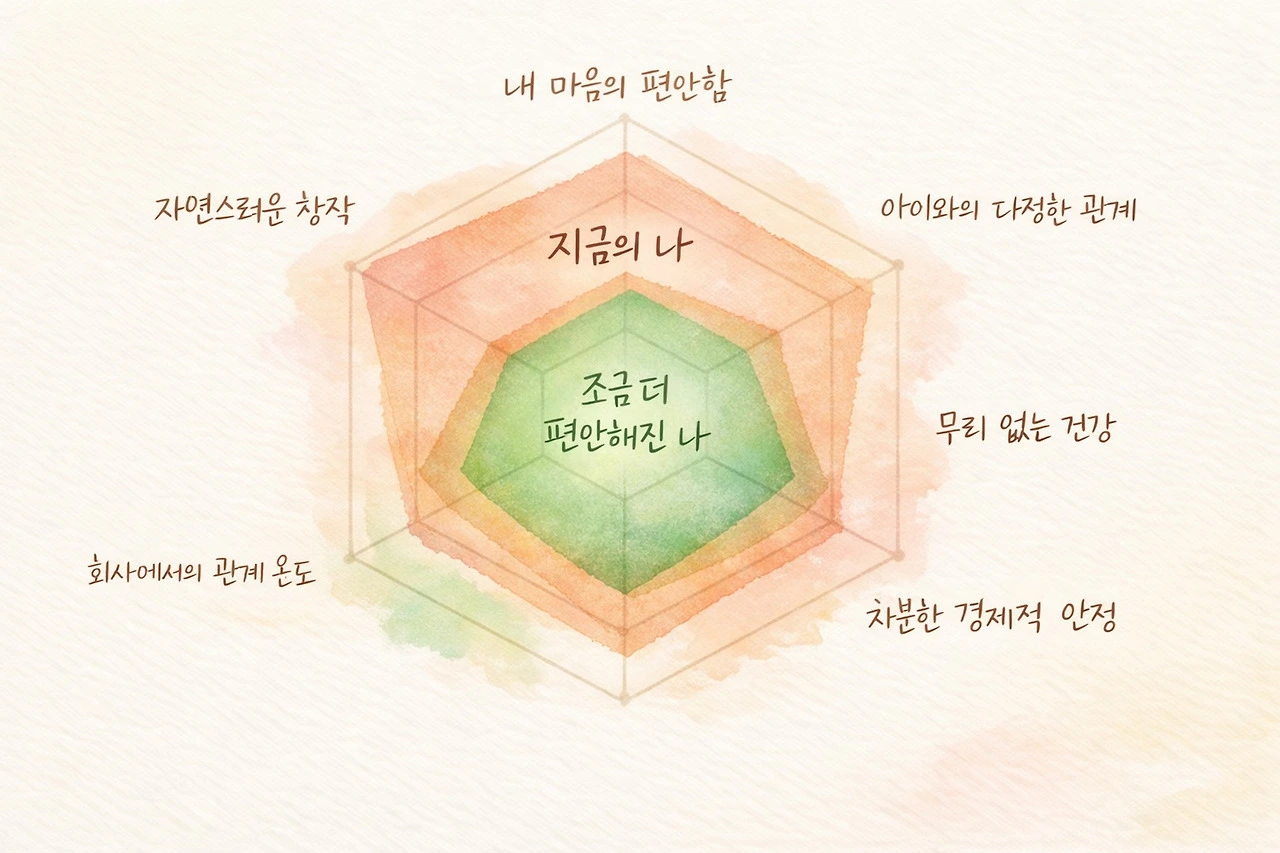 내 마음의 편안함
자연스러운 창작
아이와의 다정한 관계
지금의 나
조금 더
편안해진 나
무리 없는 건강
회사에서의 관계 온도
차분한 경제적 안정